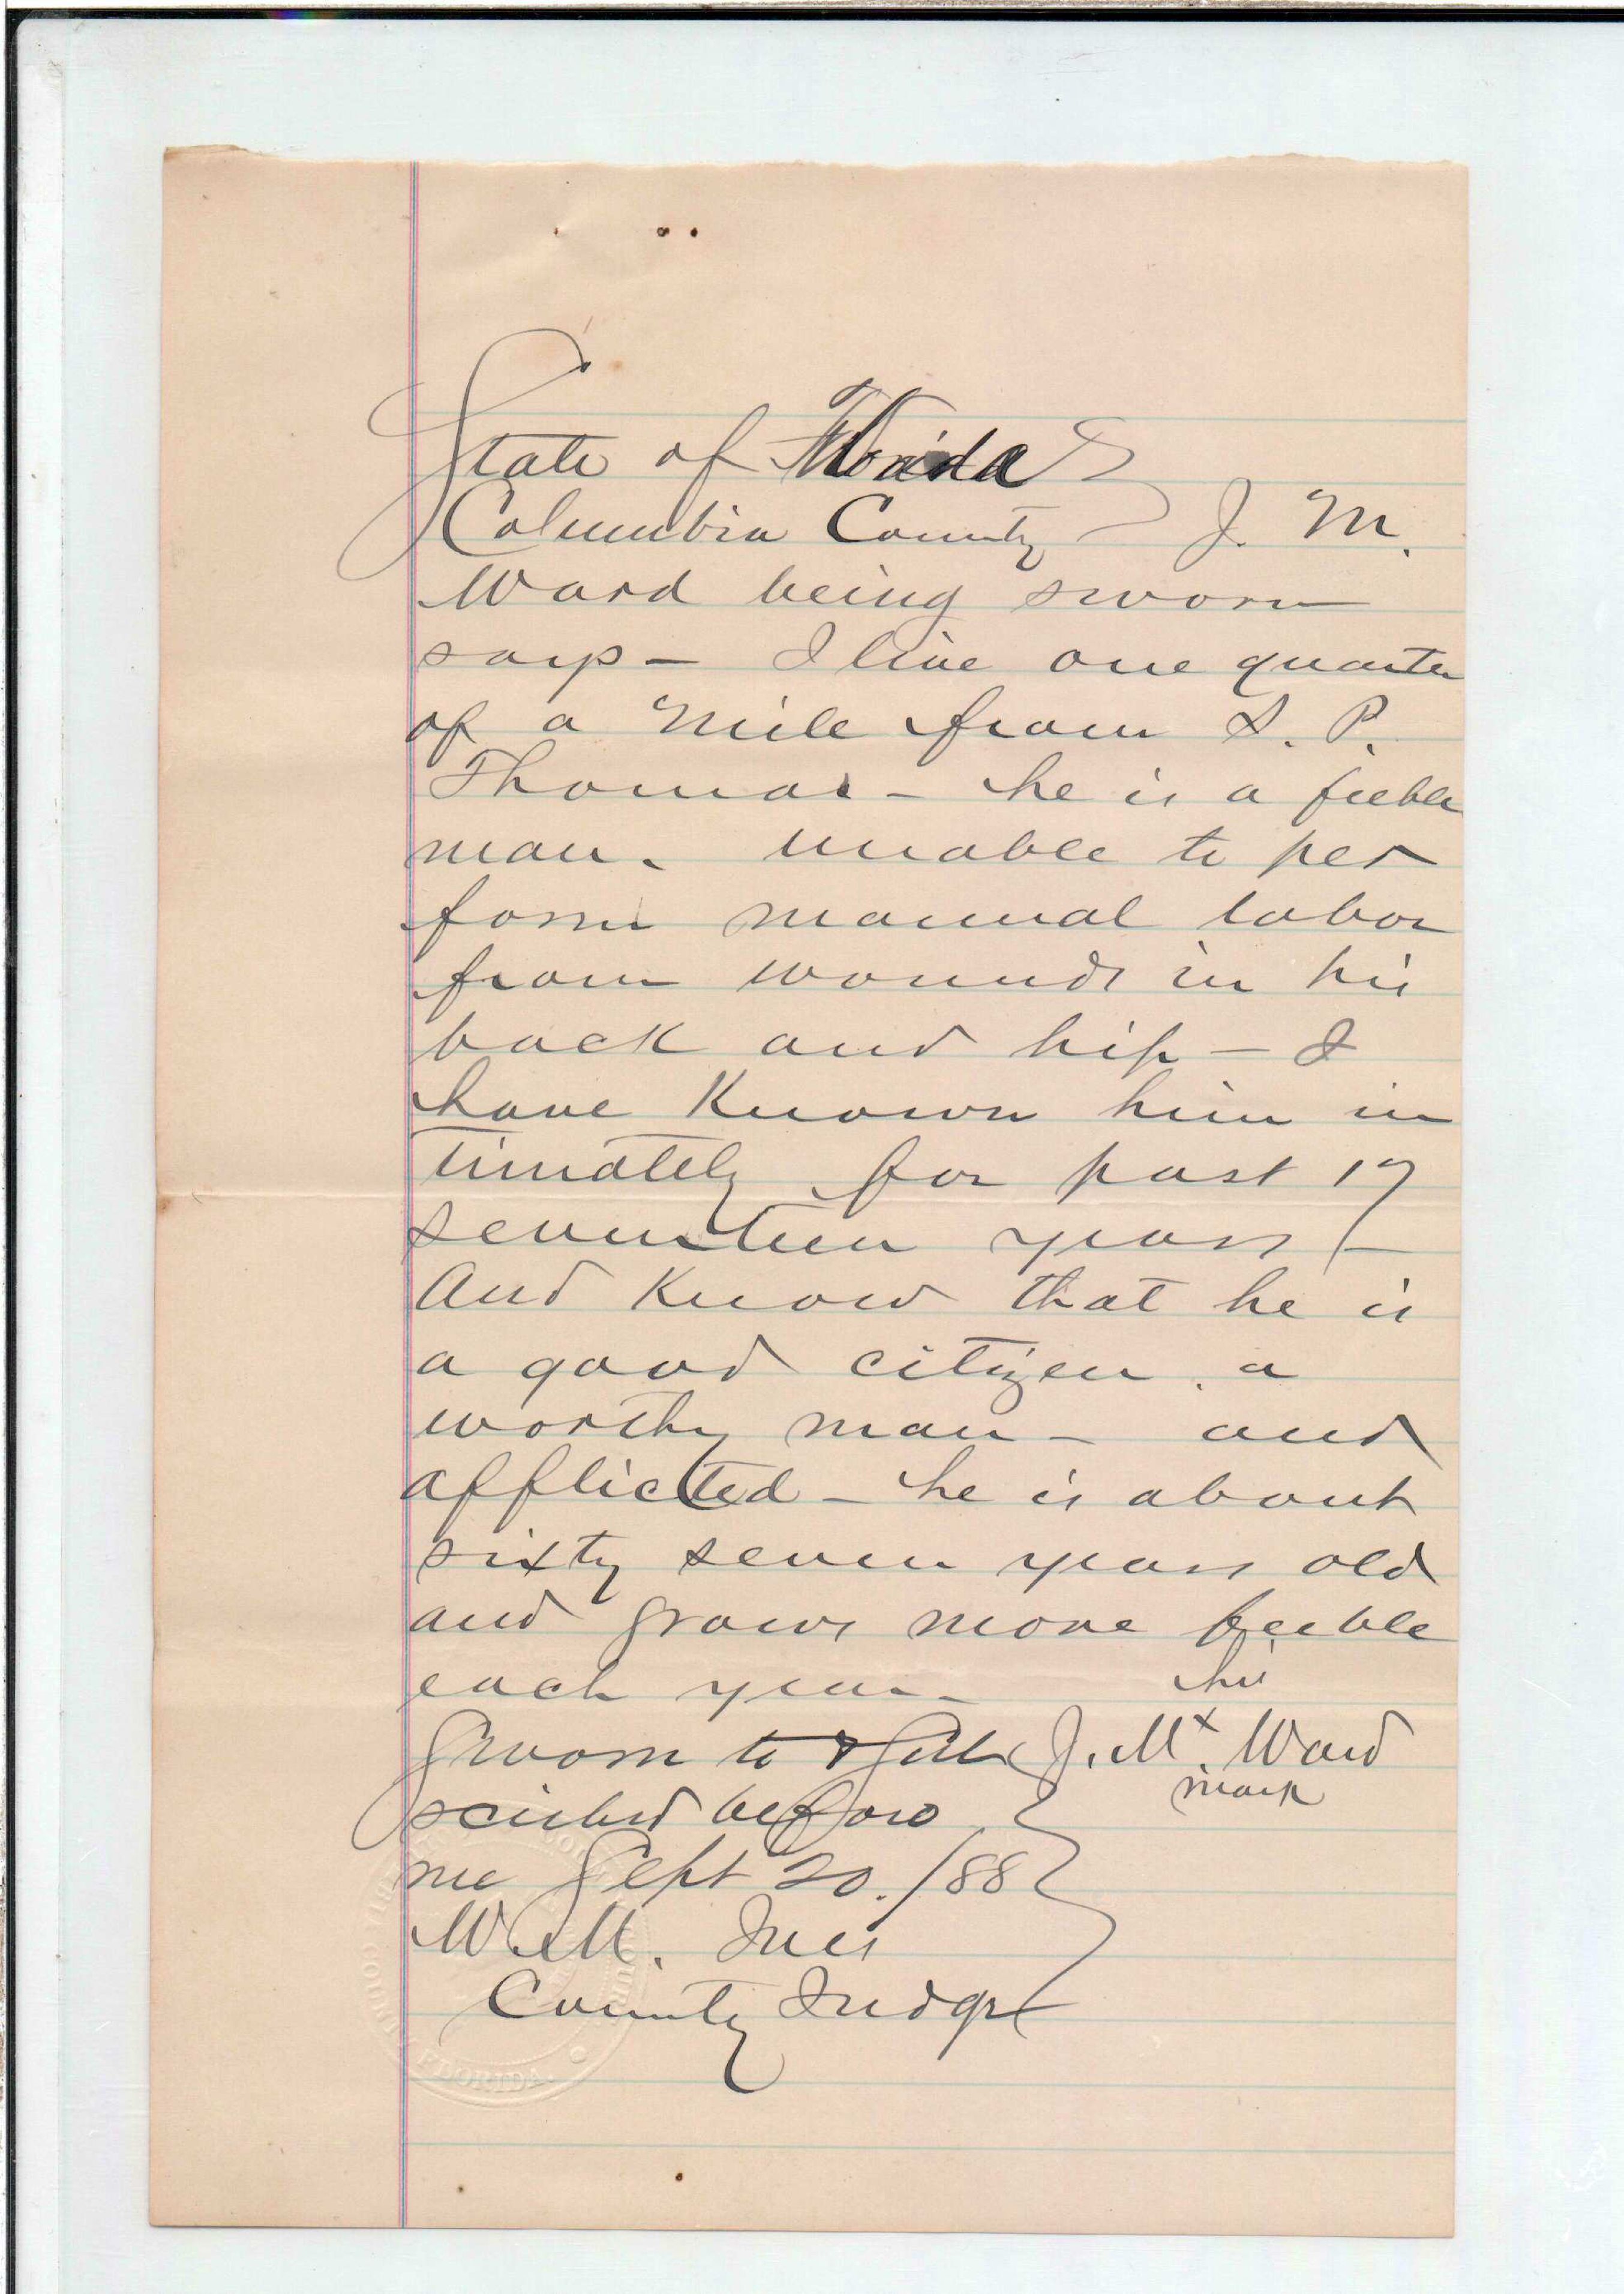 State of Florida
Columbia County J. M.
Ward being sworn
says – I live one quarter
of a mile from S. P.
Thomas – he is a feeble
man. unable to per
form manual labor
from wounds in his
back and hip – I
have Known him in
timately for past 17
seventeen years –
And Know that he is
a good citizen, a
worthy man – and
afflicted – he is about
sixty seven years old
and grows more feeble
each year –
his
Sworn to & Sub J. M. x Ward
mark
scribed before
me Sept 20. /88
W. M. Ives
County Judge
FLORIDA